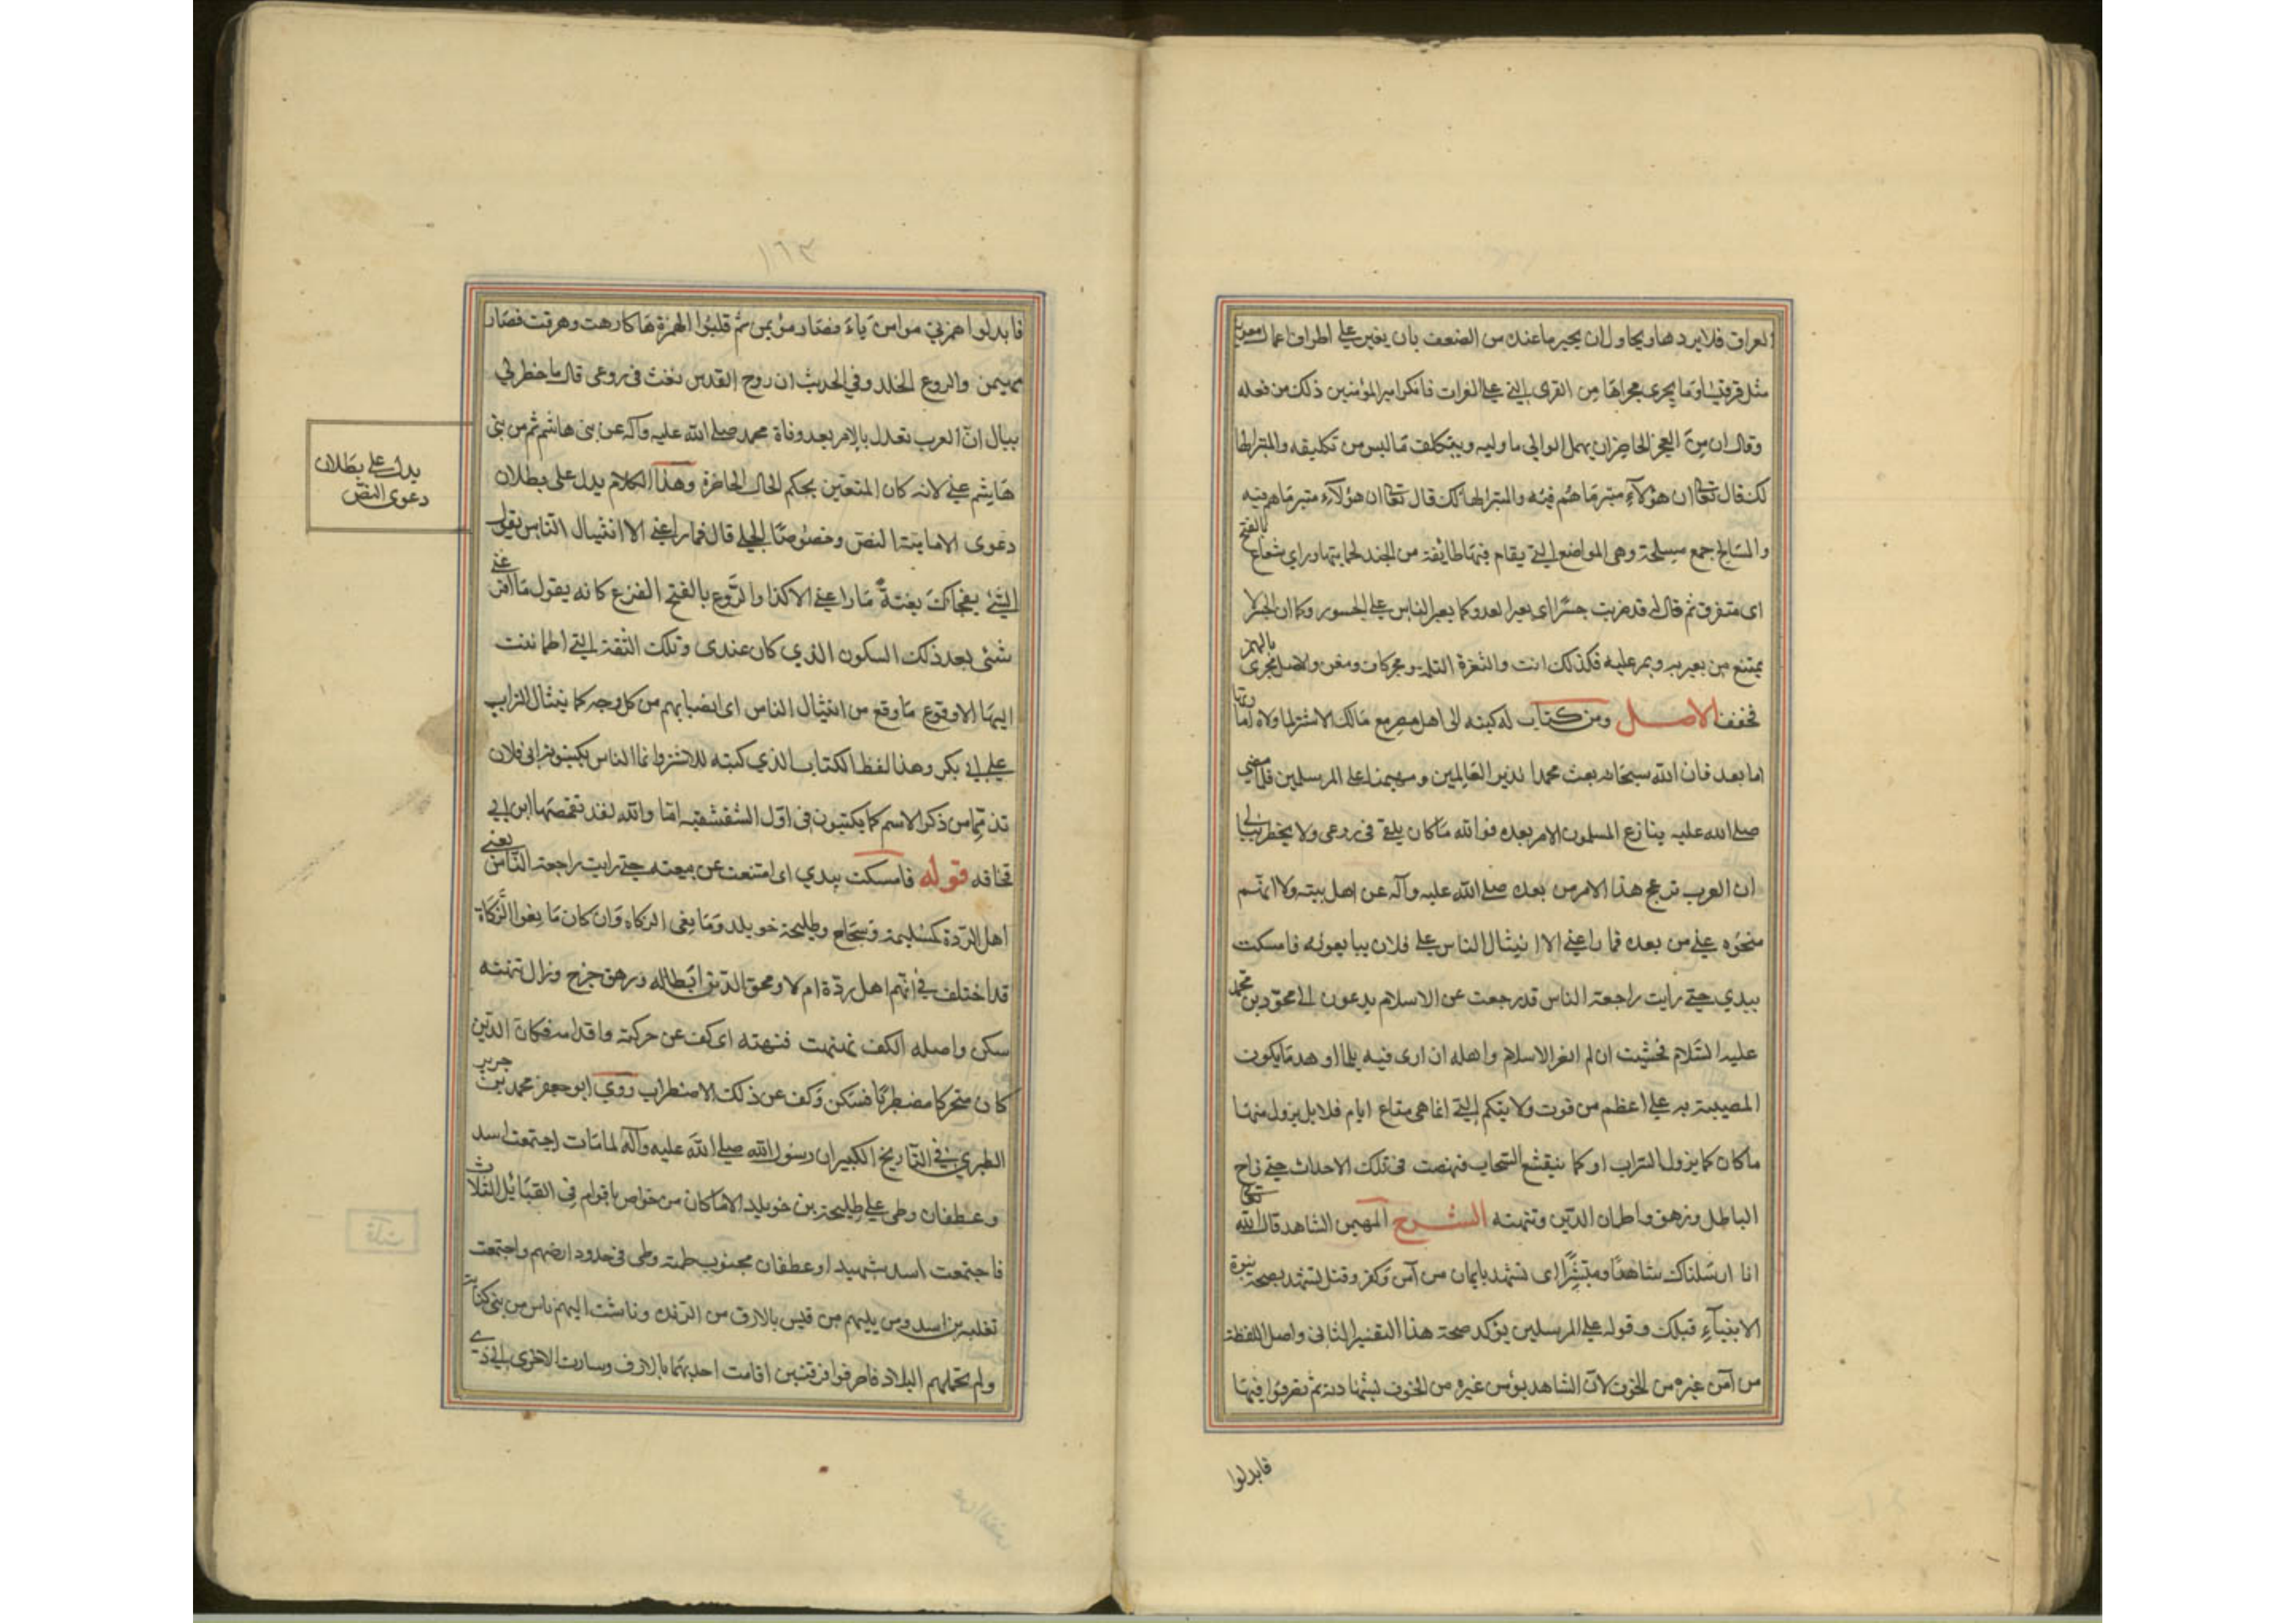 العراق فلا يردها ويحاول ان يجبر ما عنده من الضعف بان يغير على اطراف اعمال معوية
مثل قرقيسا وما يجرى مجراها من القرى التي على الفرات فانكر امير المؤمنين ذلك من فعله
وقال ان من العجز الحاضر ان يهمل الوالي ما وليه ويتكلف ما ليس من تكليفه والمتبر الها
لك قال تعالى ان هؤلاء متبر ما هم فيه والمتبر الهالك قال تعالى ان هؤلاء متبر ما هم فيه
والمسالح جمع مسلحة وهي المواضع التي يقام فيها طائفة من الجند لحمايتها وراي شعاع بالفتح
اى متفرق ثم قال له قد صرت جسرا اى يعبر العدو كما يعبر الناس على الجسور وكما ان الجسر لا
يمتنع من يعبر به ويمر عليه فكذلك انت والثغرة الثلمة ومجز كاف ومغن والاصل مجزئ بالهمز
فخفف الاصل ومن كتاب له كتبه الى اهل مصر مع مالك الاشتر لما ولاه امارتها
اما بعد فان الله سبحانه بعث محمدا نذيرا للعالمين ومهيمنا على المرسلين فلما مضى
صلى الله عليه ينازع المسلمون الامر بعده فوالله ما كان يلقى في روعى ولا يخطر ببالي
ان العرب تزعج هذا الامر من بعده صلى الله عليه وآله عن اهل بيته ولا انهم
منحوه عني من بعده فما راعني الا انثيال الناس على فلان يبايعونه فامسكت
بيدي حتى رايت راجعة الناس قد رجعت عن الاسلام يدعون الى محق دين محمد
عليه السلام فخشيت ان لم انصر الاسلام واهله ان ارى فيه ثلما او هدما يكون
المصيبة به علي اعظم من فوت ولايتكم التي انما هي متاع ايام قلايل يزول منها
ما كان كما يزول السراب او كما ينقشع السحاب فنهضت في تلك الاحداث حتى زاح
الباطل وزهق واطمان الدين وتنهنه الشرح المهيمن الشاهد قال الله تعالى
انا ارسلناك شاهدا ومبشرا اى تشهد بايمان من آمن وكفر وقيل تشهد بصحة نبوة
الانبياء قبلك وقوله على المرسلين يؤكد صحة هذا التفسير الثاني واصل اللفظة
من آمن غيره من الخوف لان الشاهد يؤمن غيره من الخوف بشهادته ثم تصرفوا فيها
فابدلوا
١٦٣
فابدلوا همزتي موامن ياء فصار مؤيمن ثم قلبوا الهمزة هاء كارهت وهرقت فصار
مهيمن والروع الخلد وفي الحديث ان روح القدس نفث في روعى قال ما خطر لي
ببال ان العرب تعدل بالامر بعد وفاة محمد صلى الله عليه وآله عن بني هاشم ثم من بني
هاشم عني لانه كان المتعين بحكم الحال الحاضرة وهذا الكلام يدل على بطلان
دعوى الامامية النص وخصوصا الجلي قال فما راعني الا انثيال الناس يقول
للشئ يفجاك بغتة ما راعني الا كذا والروع بالفتح الفزع كانه يقول ما افزعني
شئى بعد ذلك السكون الذي كان عندى وتلك الثقة التي اطماننت
اليها الا وقوع ما وقع من انثيال الناس اى انصبابهم من كل وجه كما ينثال التراب
على ابي بكر وهذا لفظ الكتاب الذي كتبه للاشتر وانما الناس يكتبونه الى فلان
تذمما من ذكر الاسم كما يكتبون في اول الشقشقية اما والله لقد تقمصها ابن ابي
قحافة قوله فامسكت بيدي اى امتنعت عن بيعته حتى رايت راجعة الناس يعني
اهل الردة كمسيلمة وسجاح وطليحة خويلد وما بغى الزكاه وان كان ما بغوا الزكاة
قد اختلف في انهم اهل ردة ام لا ومحق الدين ابطاله وزهق خرج وزال تنهنه
سكن واصله الكف نهنهت فتنهنه اى كف عن حركته واقدامه فكان الدين
كان متحركا مضطربا فسكن وكف عن ذلك الاضطراب روى ابو جعفر محمد بن جرير
الطبري في التاريخ الكبير ان رسول الله صلى الله عليه وآله لما مات اجتمعت اسد
وغطفان وطي على طليحة بن خويلد الا ما كان من خواص اقوام في القبائل الثلاث
فاجتمعت اسد بسميراء وغطفان بجنوب طيبة وطى في حدود ارضهم واجتمعت
ثعلبة بن اسد ومن يليهم من قيس بالابرق من الربذه وتاشت اليهم ناس من بني كنانة
ولم تحملهم البلاد فافترقوا فرقتين اقامت احديهما بالابرق وسارت الاخرى الى ذي
يدل على بطلان
دعوى النص